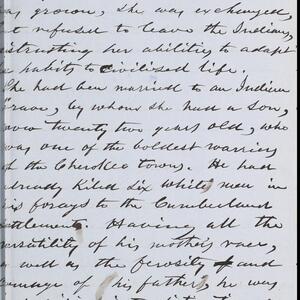 was grown, she was exchanged,
refused to leave the Indians,
her abilities to adapt
habits to civilised life.
She had been married to an Indian
brave, by whom she had a son,
now twenty two years old, who
was one of the boldest warriors
of the Cherokee towns. He had
already Killed six white men in
his forays to the Cumberland
settlements. Having all the
versatility of his mother's race,
as well as the ferosity and
courage of his father, he was